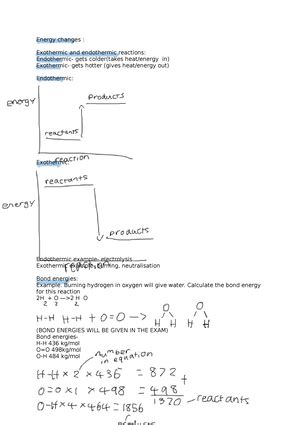 Energy changes :
Exothermic and endothermic reactions:
Endothermic- gets colder(takes heat/energy in)
Exothermic- gets hotter (gives heat/energy out)
Endothermic:
energy
products
reactants
reaction
Exothermic:
reactants
energy
products
Endothermic example- electrolysis
neutralisation
Bond energies:
Example. Burning hydrogen in oxygen will give water. Calculate the bond energy
for this reaction
2H + O —>2 H O
2 2 2
H-H H-H + O=O —> O O
H H H H
(BOND ENERGIES WILL BE GIVEN IN THE EXAM)
Bond energies-
H-H 436 kj/mol
O=O 498kg/mol
O-H 484 kj/mol
number
in equation
H-H × 2 × 436 = 872 +
O=O × 1 × 498 = 498
1370 - reactants
O-H × 4 × 464 = 1856
products